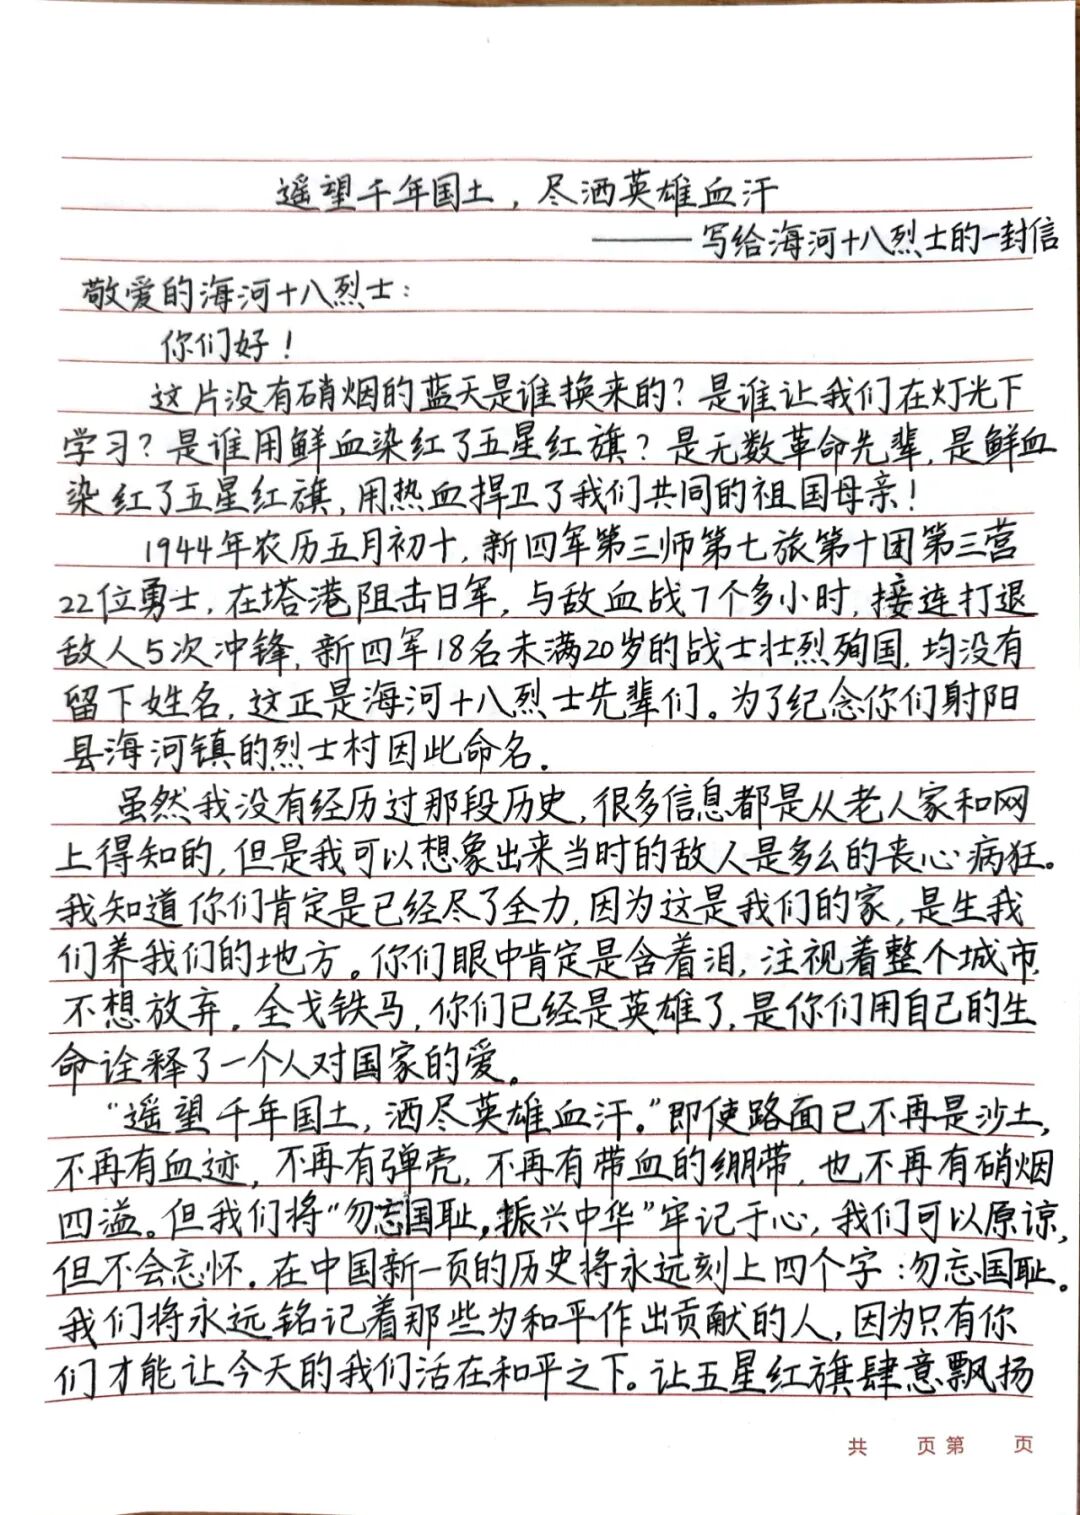 遥望千年国土，尽洒英雄血汗
——写给海河十八烈士的一封信
敬爱的海河十八烈士：
你们好！
这片没有硝烟的蓝天是谁换来的？是谁让我们在灯光下
学习？是谁用鲜血染红了五星红旗？是无数革命先辈，是鲜血
染红了五星红旗，用热血捍卫了我们共同的祖国母亲！
1944年农历五月初十，新四军第三师第七旅第十团第三营
22位勇士，在塔港阻击日军，与敌血战7个多小时，接连打退
敌人5次冲锋，新四军18名未满20岁的战士壮烈殉国，均没有
留下姓名，这正是海河十八烈士先辈们。为了纪念你们射阳
县海河镇的烈士村因此命名。
虽然我没有经历过那段历史，很多信息都是从老人家和网
上得知的，但是我可以想象出来当时的敌人是多么的丧心病狂。
我知道你们肯定是已经尽了全力，因为这是我们的家，是生我
们养我们的地方。你们眼中肯定是含着泪，注视着整个城市，
不想放弃。全戈铁马，你们已经是英雄了，是你们用自己的生
命诠释了一个人对国家的爱。
“遥望千年国土，洒尽英雄血汗。”即使路面已不再是沙土，
不再有血迹，不再有弹壳，不再有带血的绷带，也不再有硝烟
四溢。但我们将“勿忘国耻，振兴中华”牢记于心，我们可以原谅，
但不会忘怀。在中国新一页的历史将永远刻上四个字：勿忘国耻。
我们将永远铭记着那些为和平作出贡献的人，因为只有你
们才能让今天的我们活在和平之下。让五星红旗肆意飘扬
共 页 第 页